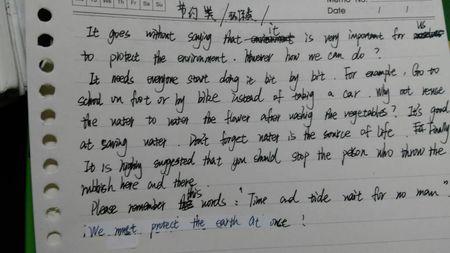 Tu We Th Fr Sa Su
Memo No.
Date / /
节约类 / 环保 /
It goes without saying that it is very important for us
to protect the envirnment. However how we can do?
It needs everyone start doing it bit by bit. For example, Go to
school on foot or by bike instead of taking a car. Why not reuse
the water to water the flower after washing the vegetables? It's good
at saving water. Don't forget water is the source of life. Finally
It is highly suggested that you should stop the person who throw the
rubbish here and there.
Please remember this words: "Time and tide wait for no man".
We must protect the earth at once!